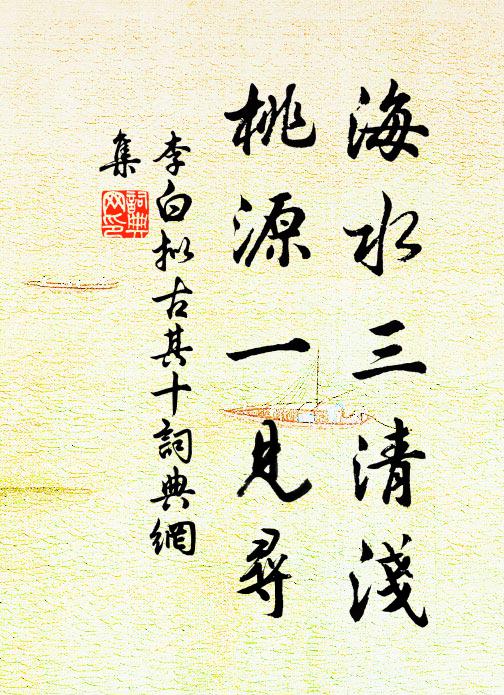 海水三清淺
桃源一見尋
李白拟古其十詞典網
集
詞典网印